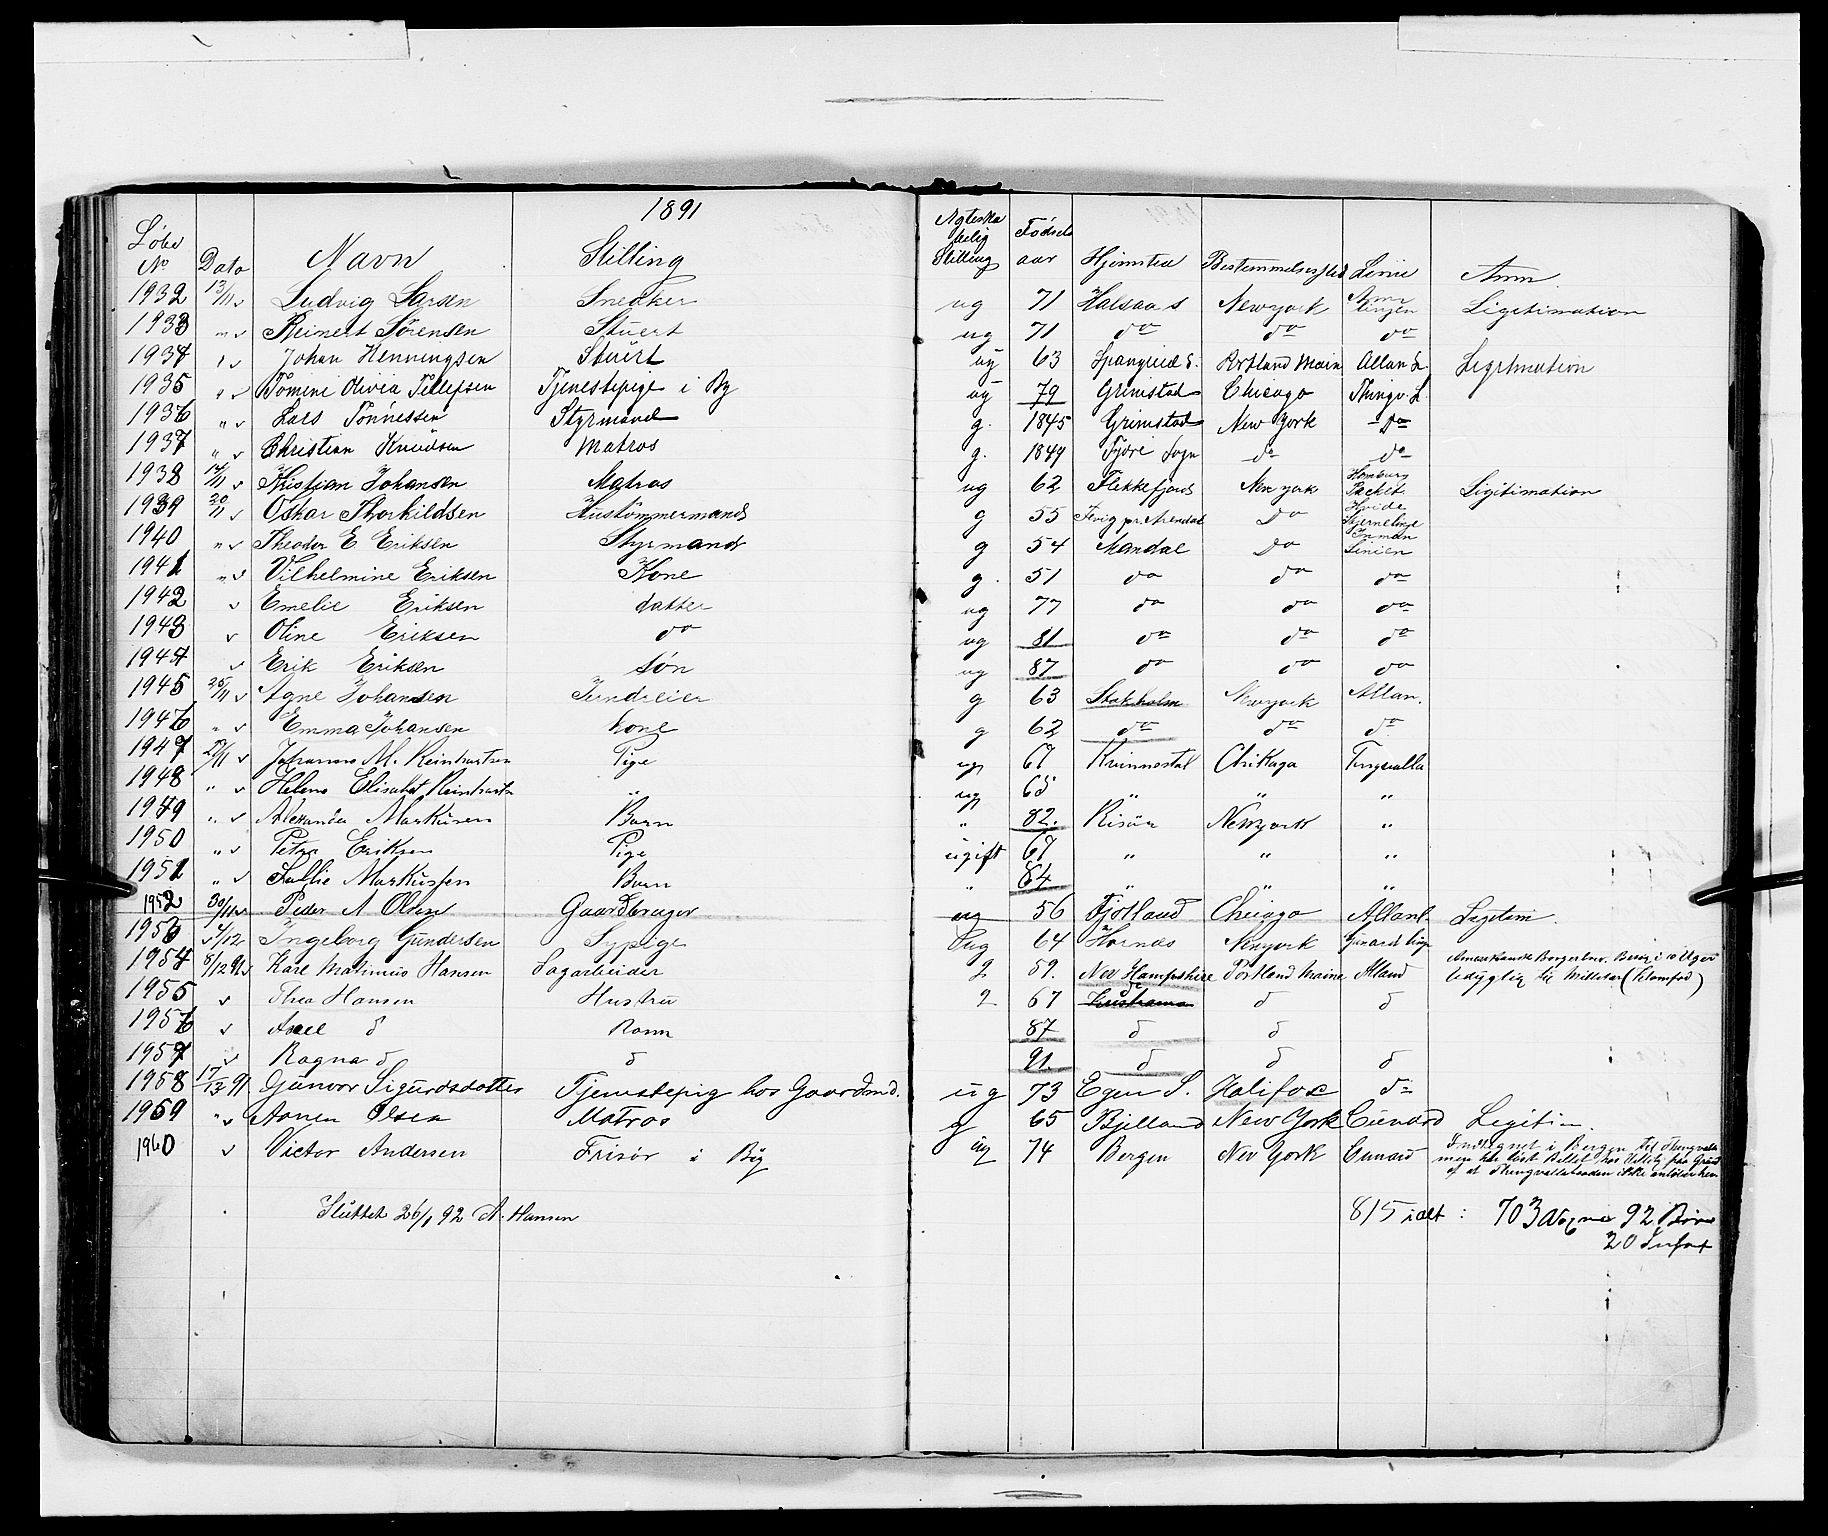 1891
Løbe No Dato Navn Stilling Fødsels aar Hjemsted Bestemmelsessted Linie Anm.
1932 13/11 v Ludvig Larsen Snedker ug 71 Halsaa s Newyork Amr Linjen Legitimation
1933 " v Reinert Sørensen Stuert ug 71 do do do
1934 " v Johan Henningsen Stuert ug 63 Spangried S. Portland Main Allan L. Legitmation
1935 " v Tomine Olivia Tellefsen Tjenestepige i By ug 79 Grimstad Chicago Thingv. L.
1936 " v Lars Tønnessen Styrmand g. 1845 Grimstad New York do
1937 " v Christian Knudsen Matros g. 1849 Sogn do do
1938 14/11 v Kristian Johansen Matros ug 62 Flekkefjord New york Hamburg Packet Ligitimation
1939 20/11 v Oskar Thorkildsen Hustømmermand g 55 Fevig pr. Arendal Do Hvide Stjernelinje
1940 " v Theodor E Eriksen Styrmand g 54 Mandal Do Inman Linien
1941 " v Vilhelmine Eriksen Kone g. 51 do do do
1942 v Emelie Eriksen datter ug 77 do do do
1943 v Oline Eriksen do ug 81 do do do
1944 v Erik Eriksen søn ug 87 do do do
1945 25/11 v Agne Johansen g 63 Stokholm Newyork Allan.
1946 " v Emma Johansen kone g 62 do do do
1947 27/11 v Johanne M. Reinhartsen Pige ug 67 Chikago Tingvalla
1948 " v Helene Elisabet Reinhartsn " ug 65 " " "
1949 " v Alexander Markusen Barn " 82. Risør Newyork "
1950 " v Petra Eriksen Pige ugift 67 " " "
1951 " v Lullie Markussen Barn " 84 " " "
1952 30/11 v Peder A Olsen Gaardbruger ug 56 Fjotland Chicago Allanl. Legitim.
1953 4/12 Ingeborg Gundersen Sypige ug 64 Hornæs Newyork Cunard Linje
1954 8/12 91 v Karl Matinius Hansen Sagarbeider g 59. New Hampshire Portland Maine Alland Amerikansk Borgerbrev.
1955 v Thea Hansen Hustru g 67 do d d
1956 v Axel d Barn 87 d d
1957 v Ragna d d 91 d d d
1958 17/12 91. Gunvor Sigurdsdatter Tjenestepig hos Gaardmd. ug 73 Egen S. Halifax do
1959 " v Aanen Olsen Matros g 65 Bjelland New York Cunard Legitim.
1960 v Victor Andersen Frisør i By ug 74 Bergen New York Cunard Indtegnet i Bergen til Thingvala
Sluttet 26/1 92 A. Hansen 815 ialt : 703 Voxne 92 Børn
20 Infant